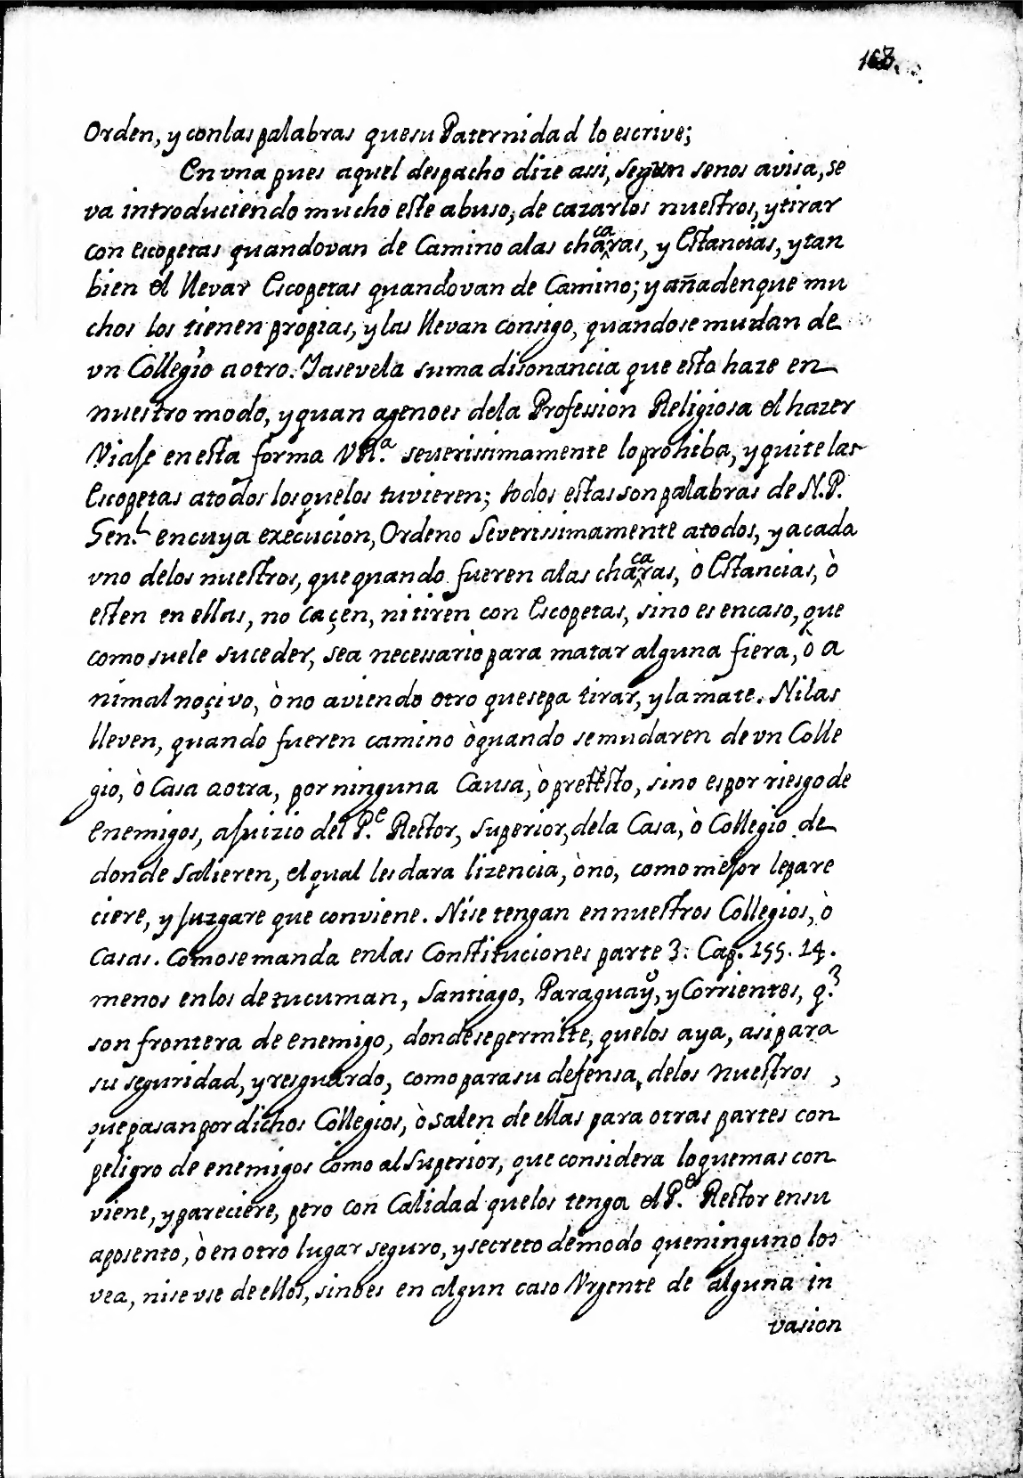 168.
Orden, y conlas palabras quesu Paternidad lo escrive;
En vna pues aquel despacho dize assi, Segun senos avisa, se
va introduciendo mucho este abuso, de cazarlos nuestros, y tirar
con escopetas quando van de Camino alas chacaras, y Estancias, y tan
bien el llevar Escopetas quando van de Camino; y añaden que mu
chos los tienen propias, y las llevan consigo, quando se mudan de
vn Collegio a otro. Ya se vela suma disonancia que esto haze en
nuestro modo, y quan ageno es dela Profession Religiosa el hazer
Viaje en esta forma VRª. severissimamente lo prohiba, y quite las
Escopetas atodos los quelos tuvieren; todos estas son palabras de N.P.
Gen.l en cuya execucion, Ordeno Severissimamente atodos, y acada
vno delos nuestros, que quando fueren alas chacaras, ò Estancias, ò
esten en ellas, no caçen, ni tiren con Escopetas, sino es encaso, que
como suele suceder, sea necessario para matar alguna fiera, ò a
nimal noçivo, ò no aviendo otro que sepa tirar, y la mate. Ni las
lleven, quando fueren camino ò quando se mudaren de vn Colle
gio, ò Casa a otra, por ninguna Causa, ò pretesto, sino es por riesgo de
enemigos, a juizio del P.e Rector, Superior, dela Casa, ò Collegio de
donde salieren, el qual les dara lizencia, ò no, como mejor lepare
ciere, y juzgare que conviene. Ni se tengan en nuestros Collegios, ò
Casas. Como se manda enlas Constituciones parte 3: Cap. 155. 14.
menos enlos de tucuman, Santiago, Paraguaÿ, y Corrientes, q.e
son frontera de enemigo, donde se permite, quelos aya, asi para
su seguridad, y resguardo, como para su defensa, delos nuestros,
que pasan por dichos Collegios, ò salen de ellas para otras partes con
peligro de enemigos como al Superior, que considera lo que mas con
viene, y pareciere, pero con Calidad quelos tenga el P.e Rector en su
aposento, ò en otro lugar seguro, y secreto de modo que ninguno los
vea, ni se vse de ellos, sino es en algun caso Vrgente de alguna in
vasion